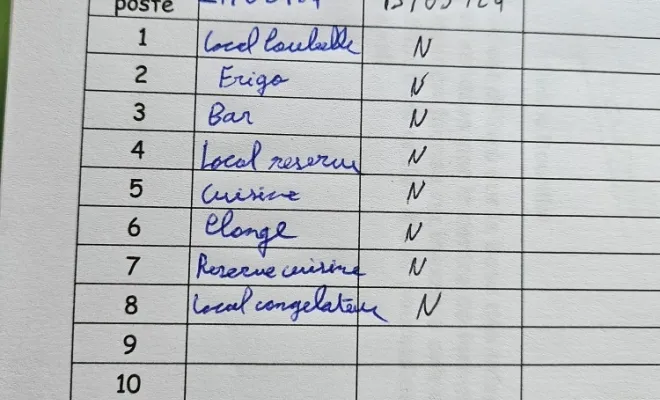 poste 15/03/24
1 Local Poubelle N
2 Frigo N
3 Bar N
4 Local reserve N
5 cuisine N
6 Plonge N
7 Reserve cuisine N
8 Local congelateur N
9
10